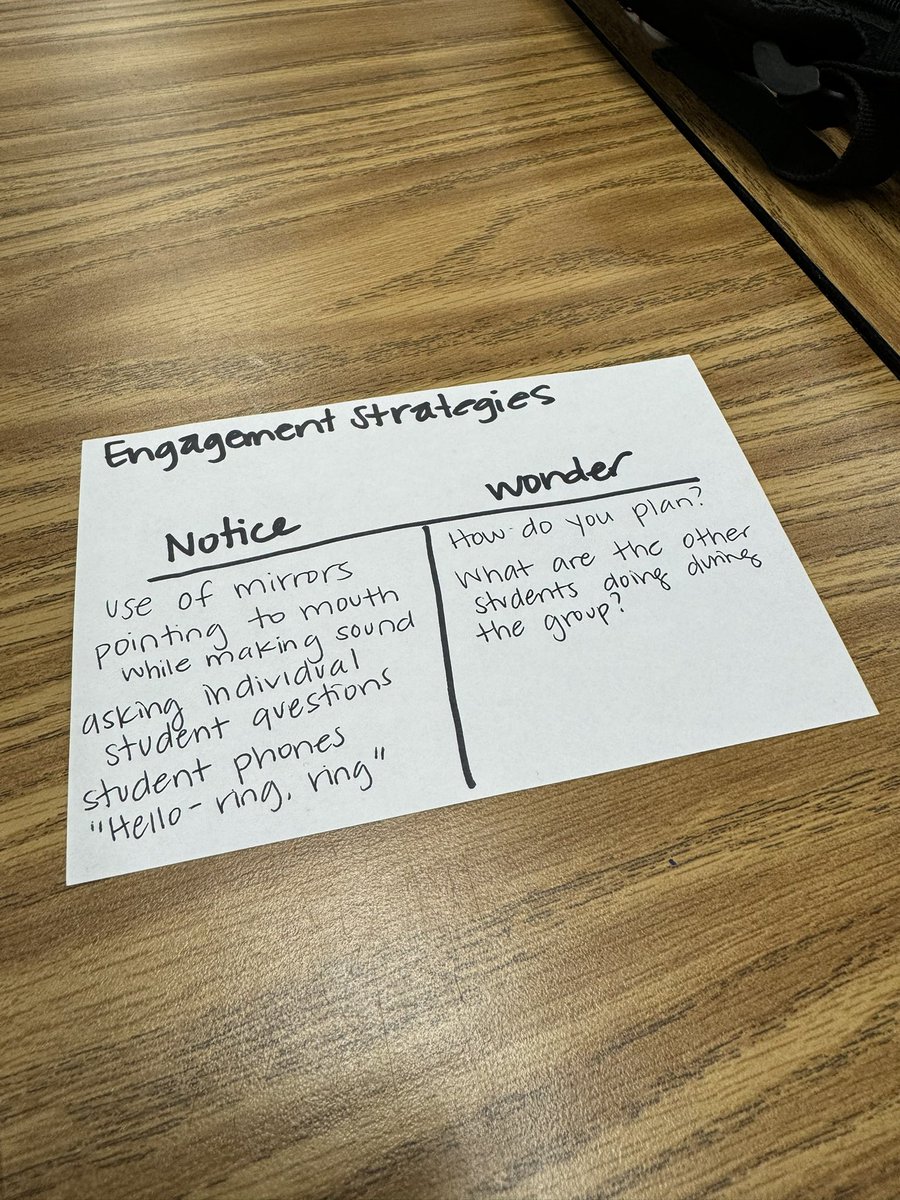 Engagement Strategies
Notice
use of mirrors
pointing to mouth
while making sound
asking individual
student questions
student phones
"Hello - ring, ring"
wonder
How do you plan?
What are the other
students doing during
the group?